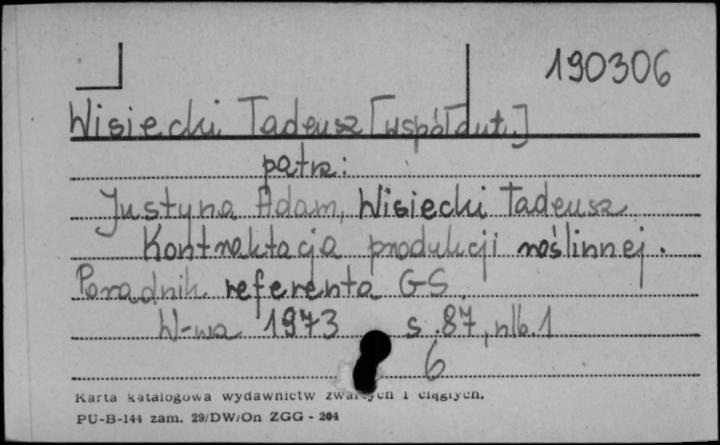 190306
Wisiecki Tadeusz [współaut.]
patrz:
Justyna Adam, Wisiecki Tadeusz
Kontraktacja produkcji roślinnej.
Poradnik referenta GS.
W-wa 1973 s. 87, nlb. 1
6
Karta katalogowa wydawnictw zwartych i ciągłych.
PU-B-144 zam. 29/DW/On ZGG - 204